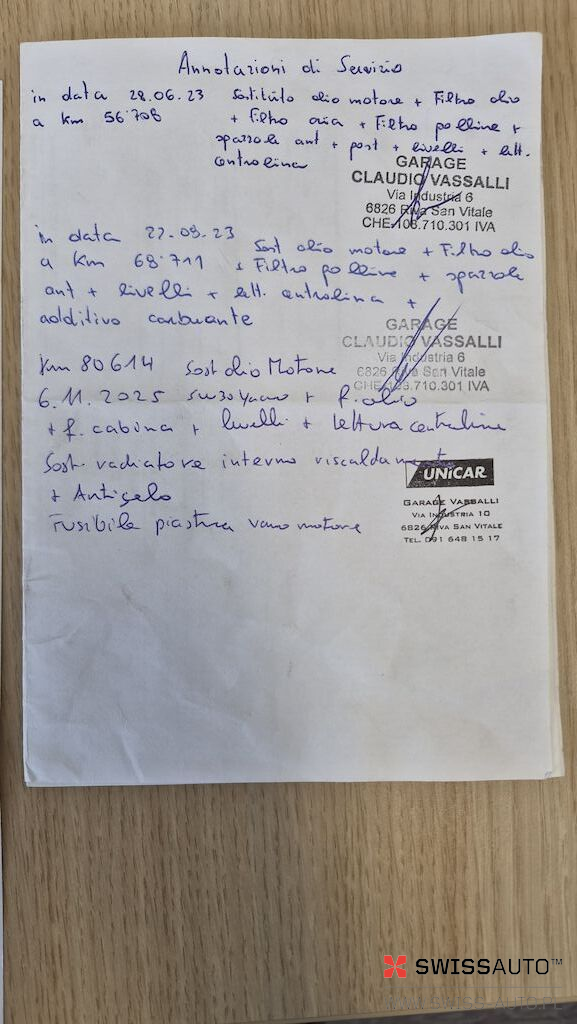 Annotazioni di Servizio
in data 28.06.23 Sostituito olio motore + Filtro olio
a km 56'708 + Filtro aria + Filtro polline +
spazzole ant + post + livelli + lett.
centralina
GARAGE
CLAUDIO VASSALLI
Via Industria 6
6826 Riva San Vitale
CHE.108.710.301 IVA
in data 22.09.23 Sost olio motore + Filtro olio
a km 68.711 + Filtro polline + spazzole
ant + livelli + lett. centralina +
additivo carburante
GARAGE
CLAUDIO VASSALLI
Via Industria 6
6826 Riva San Vitale
CHE.108.710.301 IVA
Km 80614 Sost olio Motore
6.11.2025 + f. olio
+ f. cabina + livelli + lettura centraline
Sost. radiatore interno riscaldamento
+ Antigelo
Fusibile piastra vano motore
UNICAR
GARAGE VASSALLI
VIA INDUSTRIA 10
6826 RIVA SAN VITALE
TEL. 091 648 15 17
SWISSAUTO™